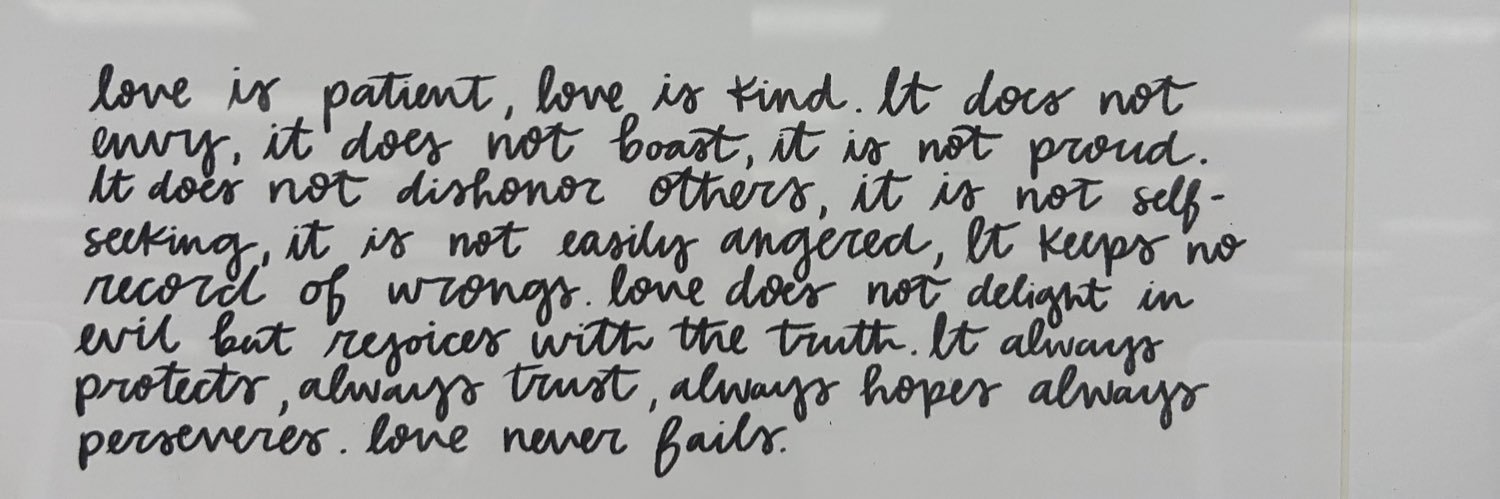 love is patient, love is kind. It does not
envy, it does not boast, it is not proud.
It does not dishonor others, it is not self-
seeking, it is not easily angered, It keeps no
record of wrongs. love does not delight in
evil but rejoices with the truth. It always
protects, always trust, always hopes always
perseveres. love never fails.